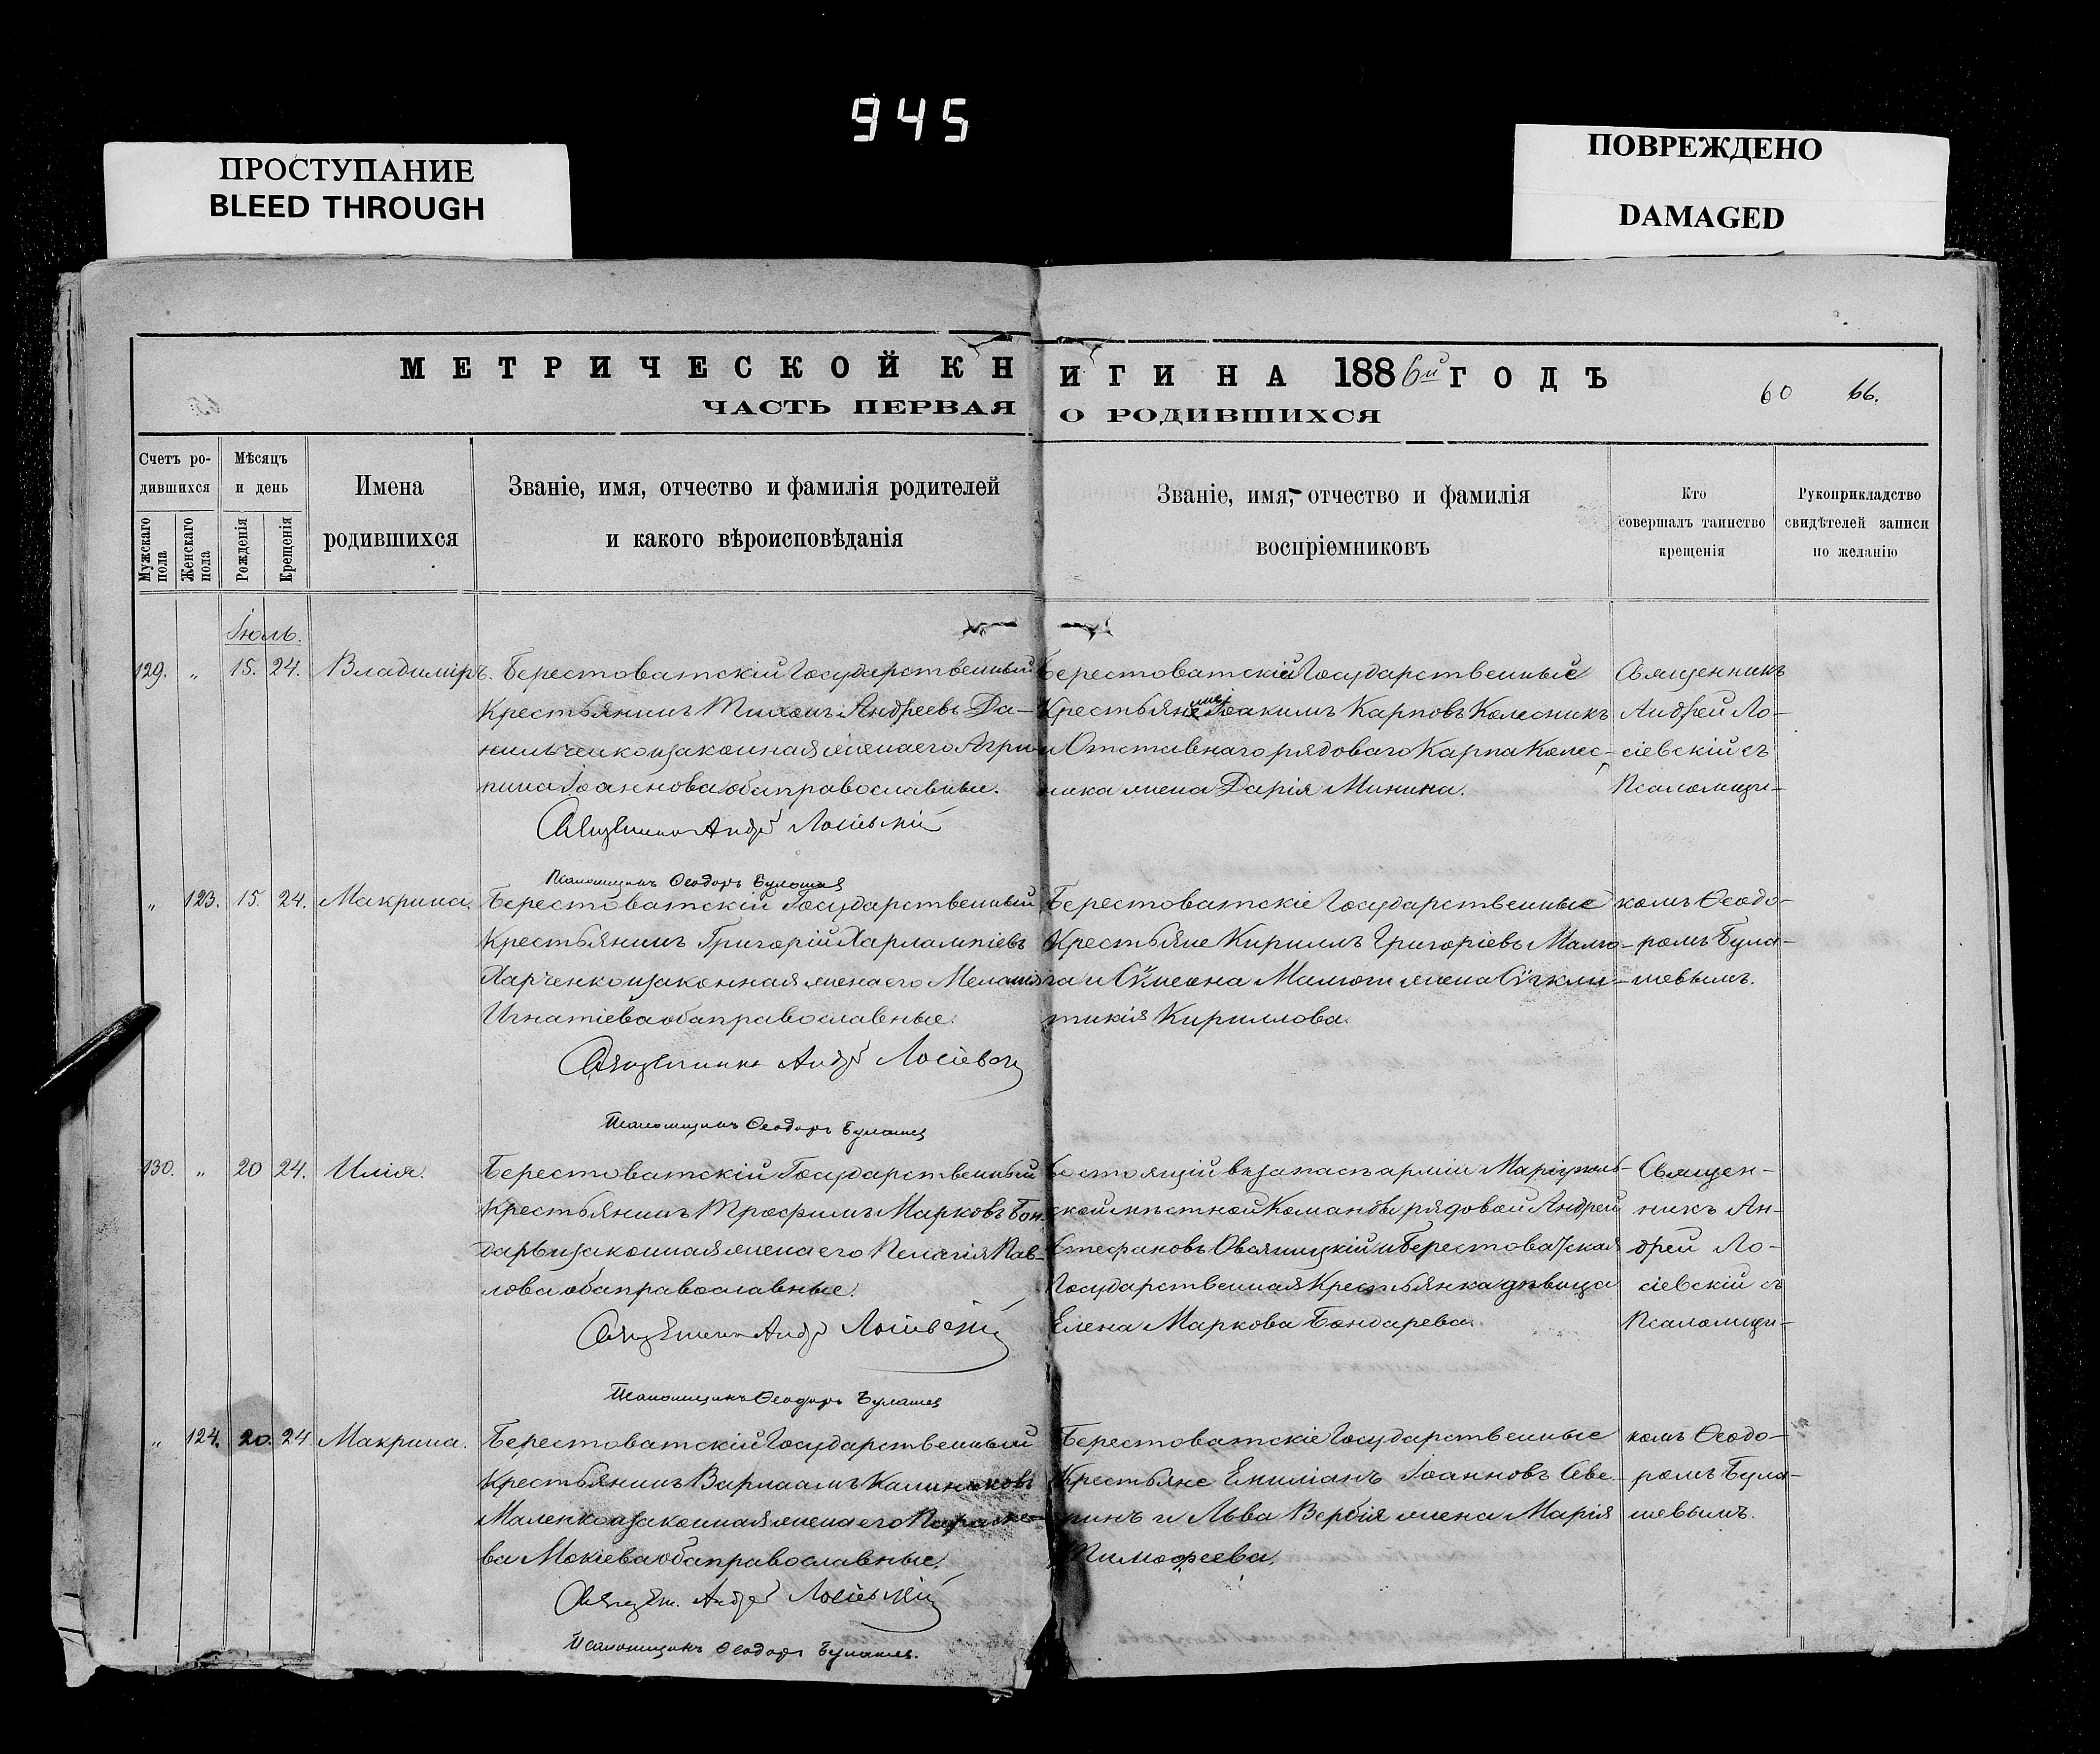 945
ПРОСТУПАНИЕ
BLEED THROUGH
ПОВРЕЖДЕНО
DAMAGED
МЕТРИЧЕСКОЙ КНИГИ НА 1886й ГОДЪ
60 66.
ЧАСТЬ ПЕРВАЯ О РОДИВШИХСЯ
Счетъ ро-
дившихся
Мужскаго пола
Женскаго пола
Мѣсяцъ
и день
Рожденія
Крещенія
Имена
родившихся
Званіе, имя, отчество и фамилія родителей
и какого вѣроисповѣданія
Званіе, имя, отчество и фамилія
воспріемниковъ
Кто
совершалъ таинство
крещенія
Рукоприкладство
свидѣтелей записи
по желанію
Іюль.
129. „ 15. 24. Владиміръ.
Берестоватскій Государственный
Крестьянинъ Тихонъ Андреевъ Да-
нильченко и законная жена его Агри-
пина Іоаннова оба православные.
Священникъ Андрей Лосіевскій
Псаломщикъ Ѳеодоръ Булашев
Берестоватскій Государственные
Іоакимъ Карповъ Колесникъ
и Отставнаго рядоваго Карпа Колес-
ника жена Дарія Минина.
Священникъ
Андрей Ло-
сіевскій съ
Псаломщи-
„ 123. 15. 24. Макрина.
Берестоватскій Государственный
Крестьянинъ Григорій Харлампіевъ
Харченко и законная жена его Меланія
Игнатіева оба православные.
Священникъ Андрей Лосіевскій
Псаломщикъ Ѳеодоръ Булашев
Берестоватскіе Государственные
Крестьяне Кириллъ Григоріевъ
га и Сѵмеона жена Сѵнкли-
тикія Кириллова.
комъ Ѳеодо-
ромъ Була-
шевымъ.
130. „ 20 24. Илія.
Берестоватскій Государственный
Крестьянинъ Трофимъ Марковъ Бон-
дарь и законная жена его Пелагія Пав-
лова оба православные.
Священникъ Андрей Лосіевскій
Псаломщикъ Ѳеодоръ Булашев
Состоящій въ запасѣ арміи Маріуполь-
ской мѣстной Команды рядовой Андрей
Стефановъ и Берестоватская
Государственная Крестьянка дѣвица
Елена Маркова Бондарева.
Священ-
никъ Ан-
дрей Ло-
сіевскій съ
Псаломщи-
„ 124. 20. 24. Макрина.
Берестоватскій Государственный
Крестьянинъ Варлаамъ Калиниковъ
Маленко и законная жена его Параске-
ва Мокіева оба православные.
Священ. Андрей Лосіевскій
Псаломщикъ Ѳеодоръ Булашев.
Берестоватскіе Государственные
Крестьяне Емиліанъ Іоанновъ Аве-
ринъ и Льва Вербія жена Марія
Тимофеева.
комъ Ѳеодо-
ромъ Була-
шевымъ.